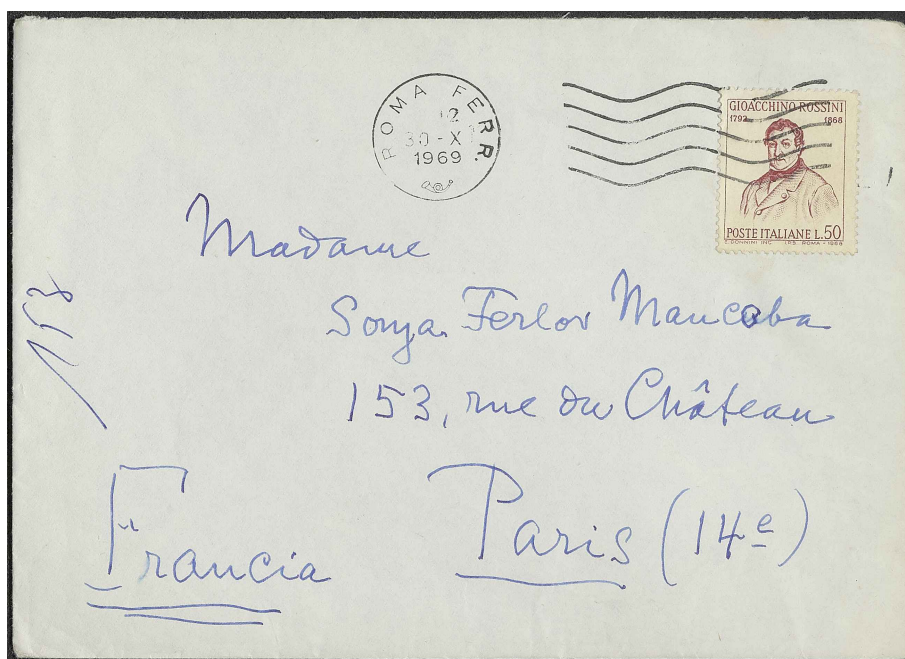 ROMA FERR.
12
30-X
1969
GIOACCHINO ROSSINI
1792 1868
POSTE ITALIANE L.50
I.P.S. ROMA - 1968
Madame
Sonja Ferlov Mancoba
153, rue du Château
Paris (14e)
Francia
158